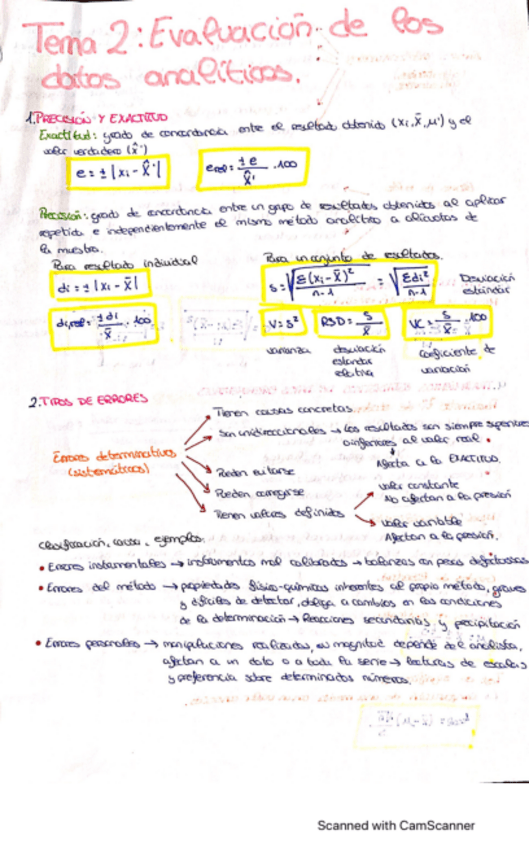 Tema 2: Evaluación de los
datos analíticos.
1. PRECISIÓN Y EXACTITUD
Exactitud: grado de concordancia entre el resultado obtenido (xi, x̄, μ') y el
valor verdadero (x̂')
e = ± |xi - x̂'|
erel = ± e / x̂' · 100
Precisión: grado de concordancia entre un grupo de resultados obtenidos al aplicar
repetida e independientemente el mismo método analítico a alícuotas de
la muestra.
Para resultado individual
Para un conjunto de resultados.
di = ± |xi - x̄|
s = √(Σ(xi - x̄)² / n-1) = √(Σdi² / n-1)
Desviación
estándar
di,rel = ± di / x̄ · 100
V = s²
RSD = s / x̄
VC = s / x̄ · 100
varianza
desviación
estándar
relativa
Coeficiente de
variación
2. TIPOS DE ERRORES
Errores determinativos
(sistemáticos)
Tienen causas concretas
Son unidireccionales → los resultados son siempre superiores
o inferiores al valor real.
Afecta a la EXACTITUD.
Pueden evitarse
Pueden corregirse
Tienen valores definidos
valor constante
No afectan a la presión
valor variable
Afectan a la presión.
Clasificación, causa, ejemplos.
• Errores instrumentales → instrumentos mal calibrados → balanzas con pesas defectuosas
• Errores del método → propiedades físico-químicas inherentes al propio método, graves
y difíciles de detectar, obliga a cambios en las condiciones
de la determinación → Reacciones secundarias y precipitación
• Errores personales → manipulaciones realizadas, su magnitud depende del analista,
afectan a un dato o a toda la serie → lecturas de escalas
y preferencia sobre determinados números.
Scanned with CamScanner